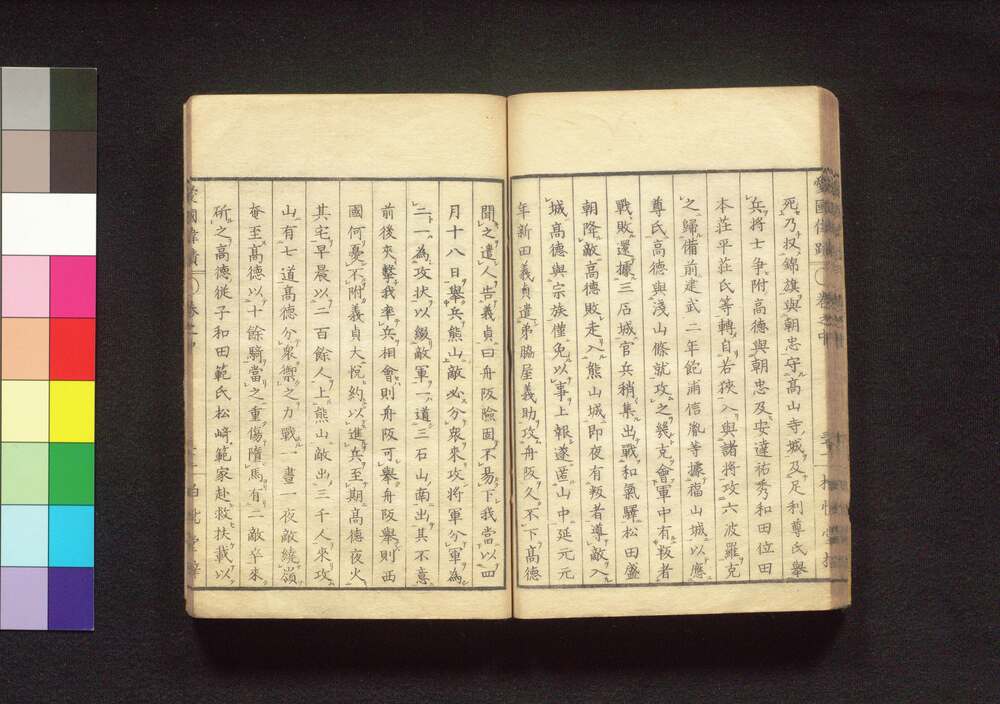 死乃収錦旗與朝忠守高山寺城及足利尊氏擧
兵將士爭附高德與朝忠及安達祐秀和田位田
本莊平莊氏等轉自若狹入與諸將攻六波羅克
之歸備前建武二年飽浦信胤等據福山城以應
尊氏高德與淺山條就攻之幾克會軍中有叛者
戰敗還據三石城官兵稍集出戰和氣驛松田盛
朝降敵高德敗走入熊山城即夜有叛者導敵入
城高德與宗族僅免以事上報遂匿山中延元元
年新田義貞遣弟脇屋義助攻舟阪久不下高德
聞之遣人告義貞曰舟阪險固不易下我當以四
月十八日擧兵熊山敵必分衆來攻將軍分軍為
二一為攻状以綴敵軍一道三石山南出其不意
前後夾撃我率兵相會則舟阪可擧舟阪擧則西
國何憂不附義貞大悅約以進兵至期高德夜火
其宅早晨以二百餘人上熊山敵出三千人來攻
山有七道高德分衆禦之力戰一晝一夜敵繞嶺
奄至高德以十餘騎當之重傷隋馬有二敵卒來
斫之高德從子和田範氏松﨑範家赴救扶載以